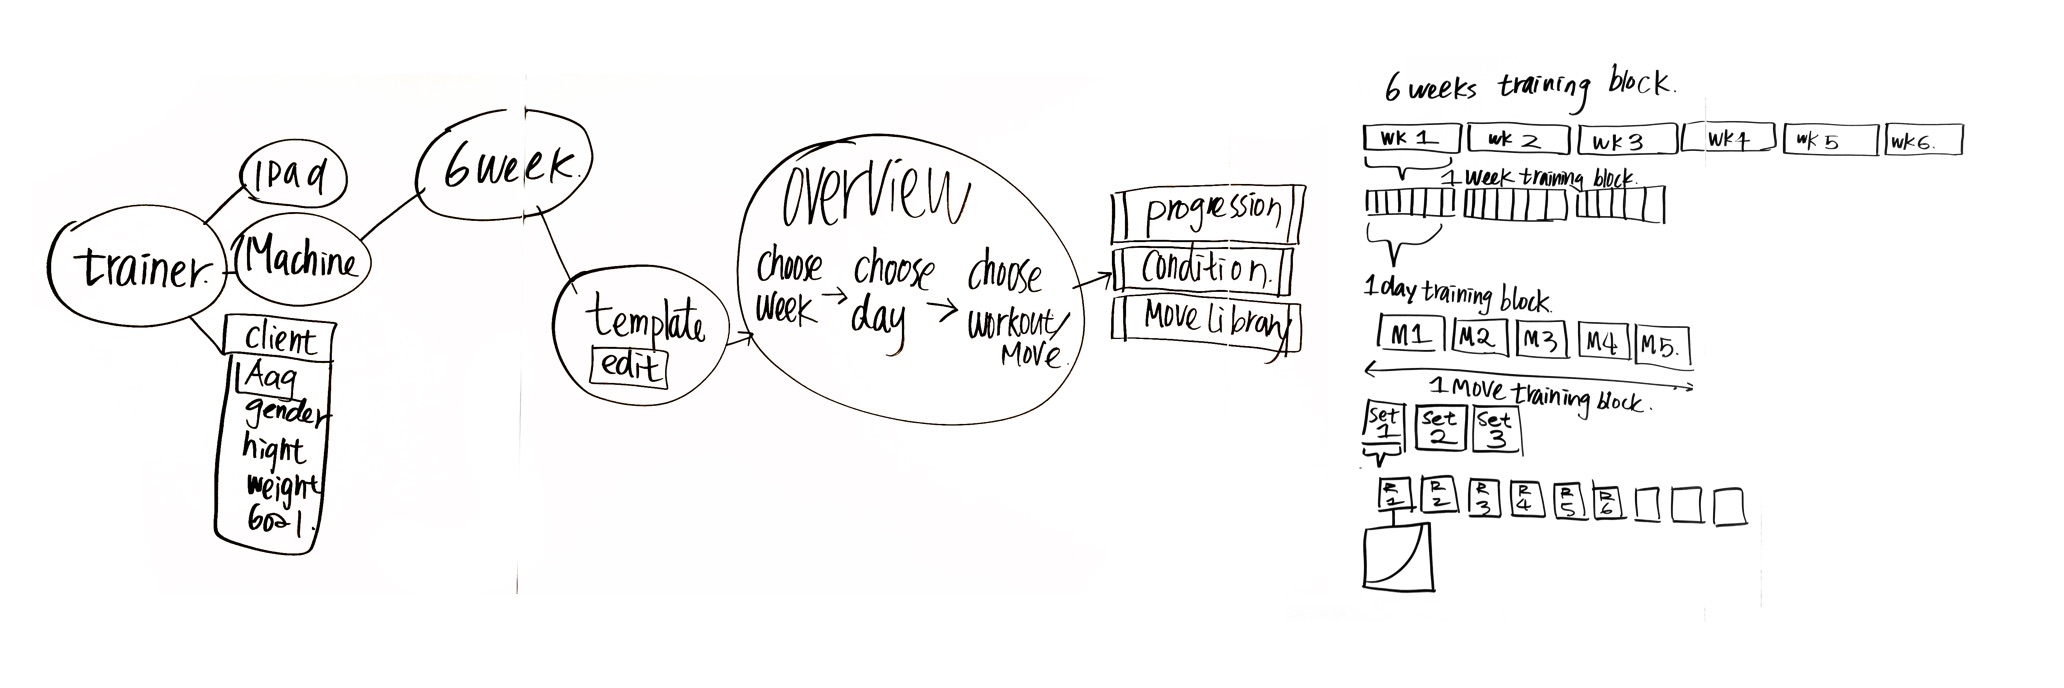 trainer.
ipad
Machine
client
Aag
gender
hight
weight
Goal.
6 week.
template
edit
overview
choose week → choose day → choose workout/ Move.
progression
Condition.
Move Library
6 weeks training block.
wk 1
wk 2
wk 3
wk 4
wk 5
wk 6.
1 week training block.
1 day training block.
M1
M2
M3
M4
M5.
1 Move training block.
Set 1
Set 2
Set 3
R 1
R 2
R 3
R 4
R 5
R 6